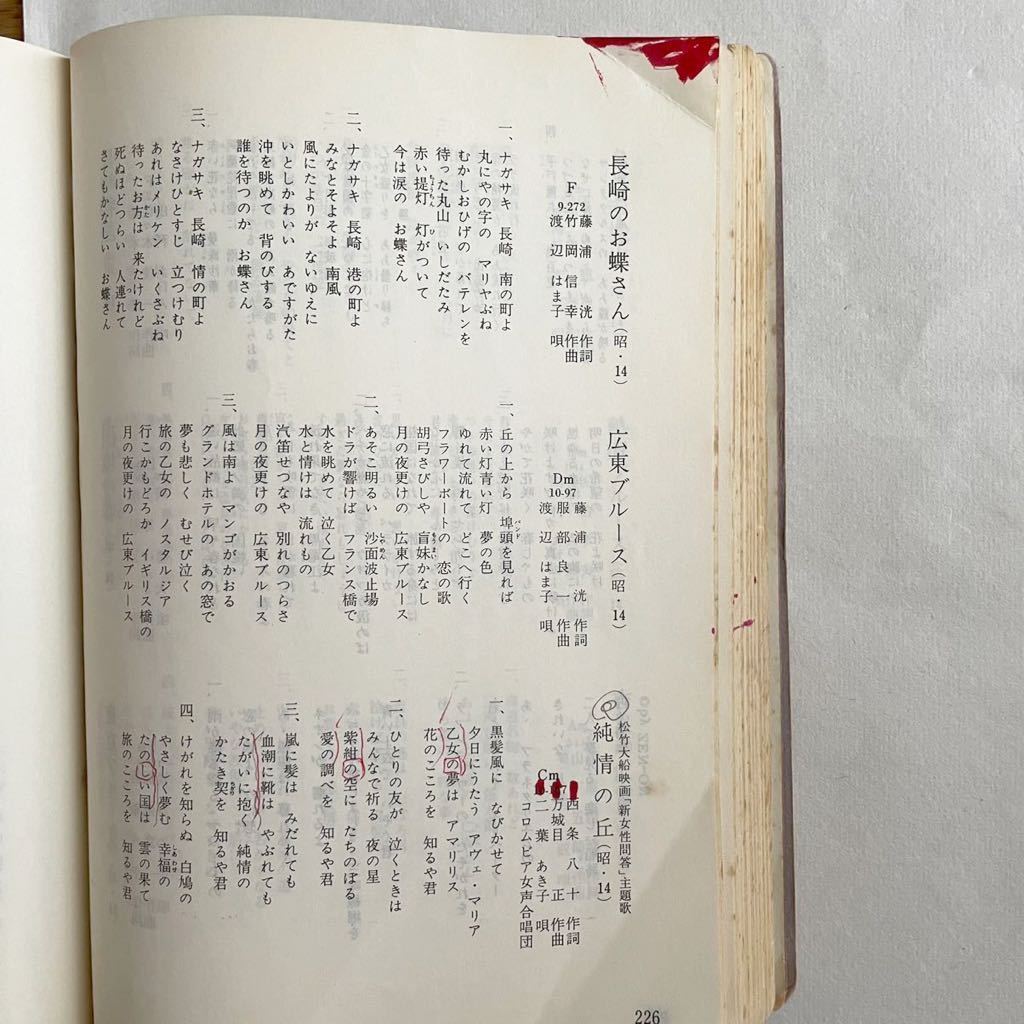 長崎のお蝶さん(昭・14)
F
9-272
藤浦 洸 作詞
竹岡信幸 作曲
渡辺はま子 唄
一、ナガサキ 長崎 南の町よ
丸にやの字の マリヤぶね
むかしおひげの バテレンを
待った丸山 いしだたみ
赤い提灯 灯がついて
今は涙の お蝶さん
二、ナガサキ 長崎 港の町よ
みなとそよそよ 南風
風にたよりが ないゆえに
いとしかわいい あですがた
沖を眺めて 背のびする
誰を待つのか お蝶さん
三、ナガサキ 長崎 情の町よ
なさけひとすじ 立つけむり
あれはメリケン いくさぶね
待ったお方は 来たけれど
死ぬほどつらい 人連れて
さてもかなしい お蝶さん
広東ブルース(昭・14)
Dm
10-97
藤浦 洸 作詞
服部良一 作曲
渡辺はま子 唄
一、丘の上から 埠頭を見れば
赤い灯青い灯 夢の色
ゆれて流れて どこへ行く
フラワーボートの 恋の歌
胡弓さびしや 盲妹かなし
月の夜更けの 広東ブルース
二、あそこ明るい 沙面波止場
ドラが響けば フランス橋で
水を眺めて 泣く乙女
水と情けは 流れもの
汽笛せつなや 別れのつらさ
月の夜更けの 広東ブルース
三、風は南よ マンゴがかおる
グランドホテルの あの窓で
夢も悲しく むせび泣く
旅の乙女の ノスタルジア
行こかもどろか イギリス橋の
月の夜更けの 広東ブルース
松竹大船映画「新女性問答」主題歌
純情の丘(昭・14)
Cm
西条八十 作詞
万城目 正 作曲
二葉あき子 唄
コロムビア女声合唱団
一、黒髪風に なびかせて
夕日にうたう アヴェ・マリア
乙女の夢は アマリリス
花のこころを 知るや君
二、ひとりの友が 泣くときは
みんなで祈る 夜の星
紫紺の空に たちのぼる
愛の調べを 知るや君
三、嵐に髪は みだれても
血潮に靴は やぶれても
たがいに抱く 純情の
かたき契を 知るや君
四、けがれを知らぬ 白鳩の
やさしく夢む 幸福の
たのしい国は 雲の果て
旅のこころを 知るや君
226